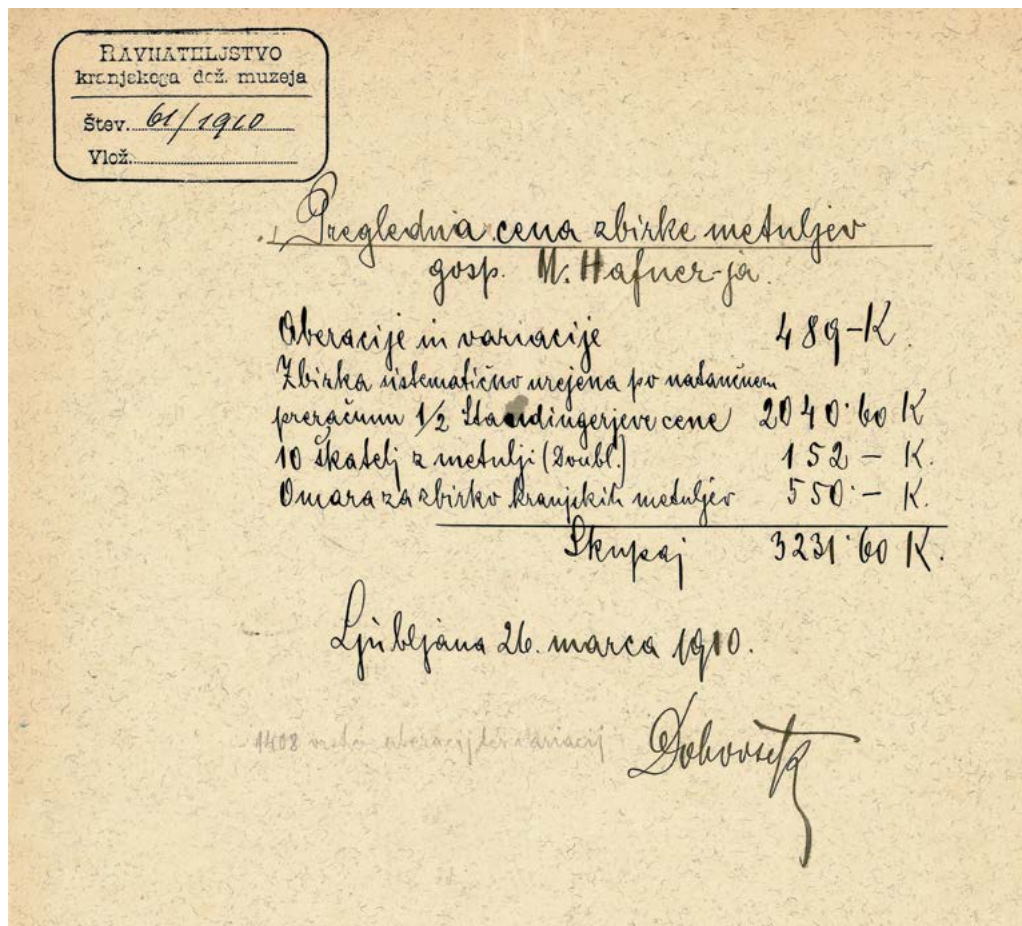 RAVNATELJSTVO
kranjskega dež. muzeja
Štev. 61/1910
Vlož.
Pregledna cena zbirke metuljev
gosp. M. Hafner-ja.
Aberacije in variacije 489 - K.
Zbirka sistematično urejena po natančnem
preračunu 1/2 Staudingerjeve cene 2040·60 K
10 škatelj z metulji (Doubl.) 152 - K.
Omara za zbirko kranjskih metuljev 550·- K.
Skupaj 3231·60 K.
Ljubljana 26. marca 1910.
1408 aberacij ter variacij
Dobovšek